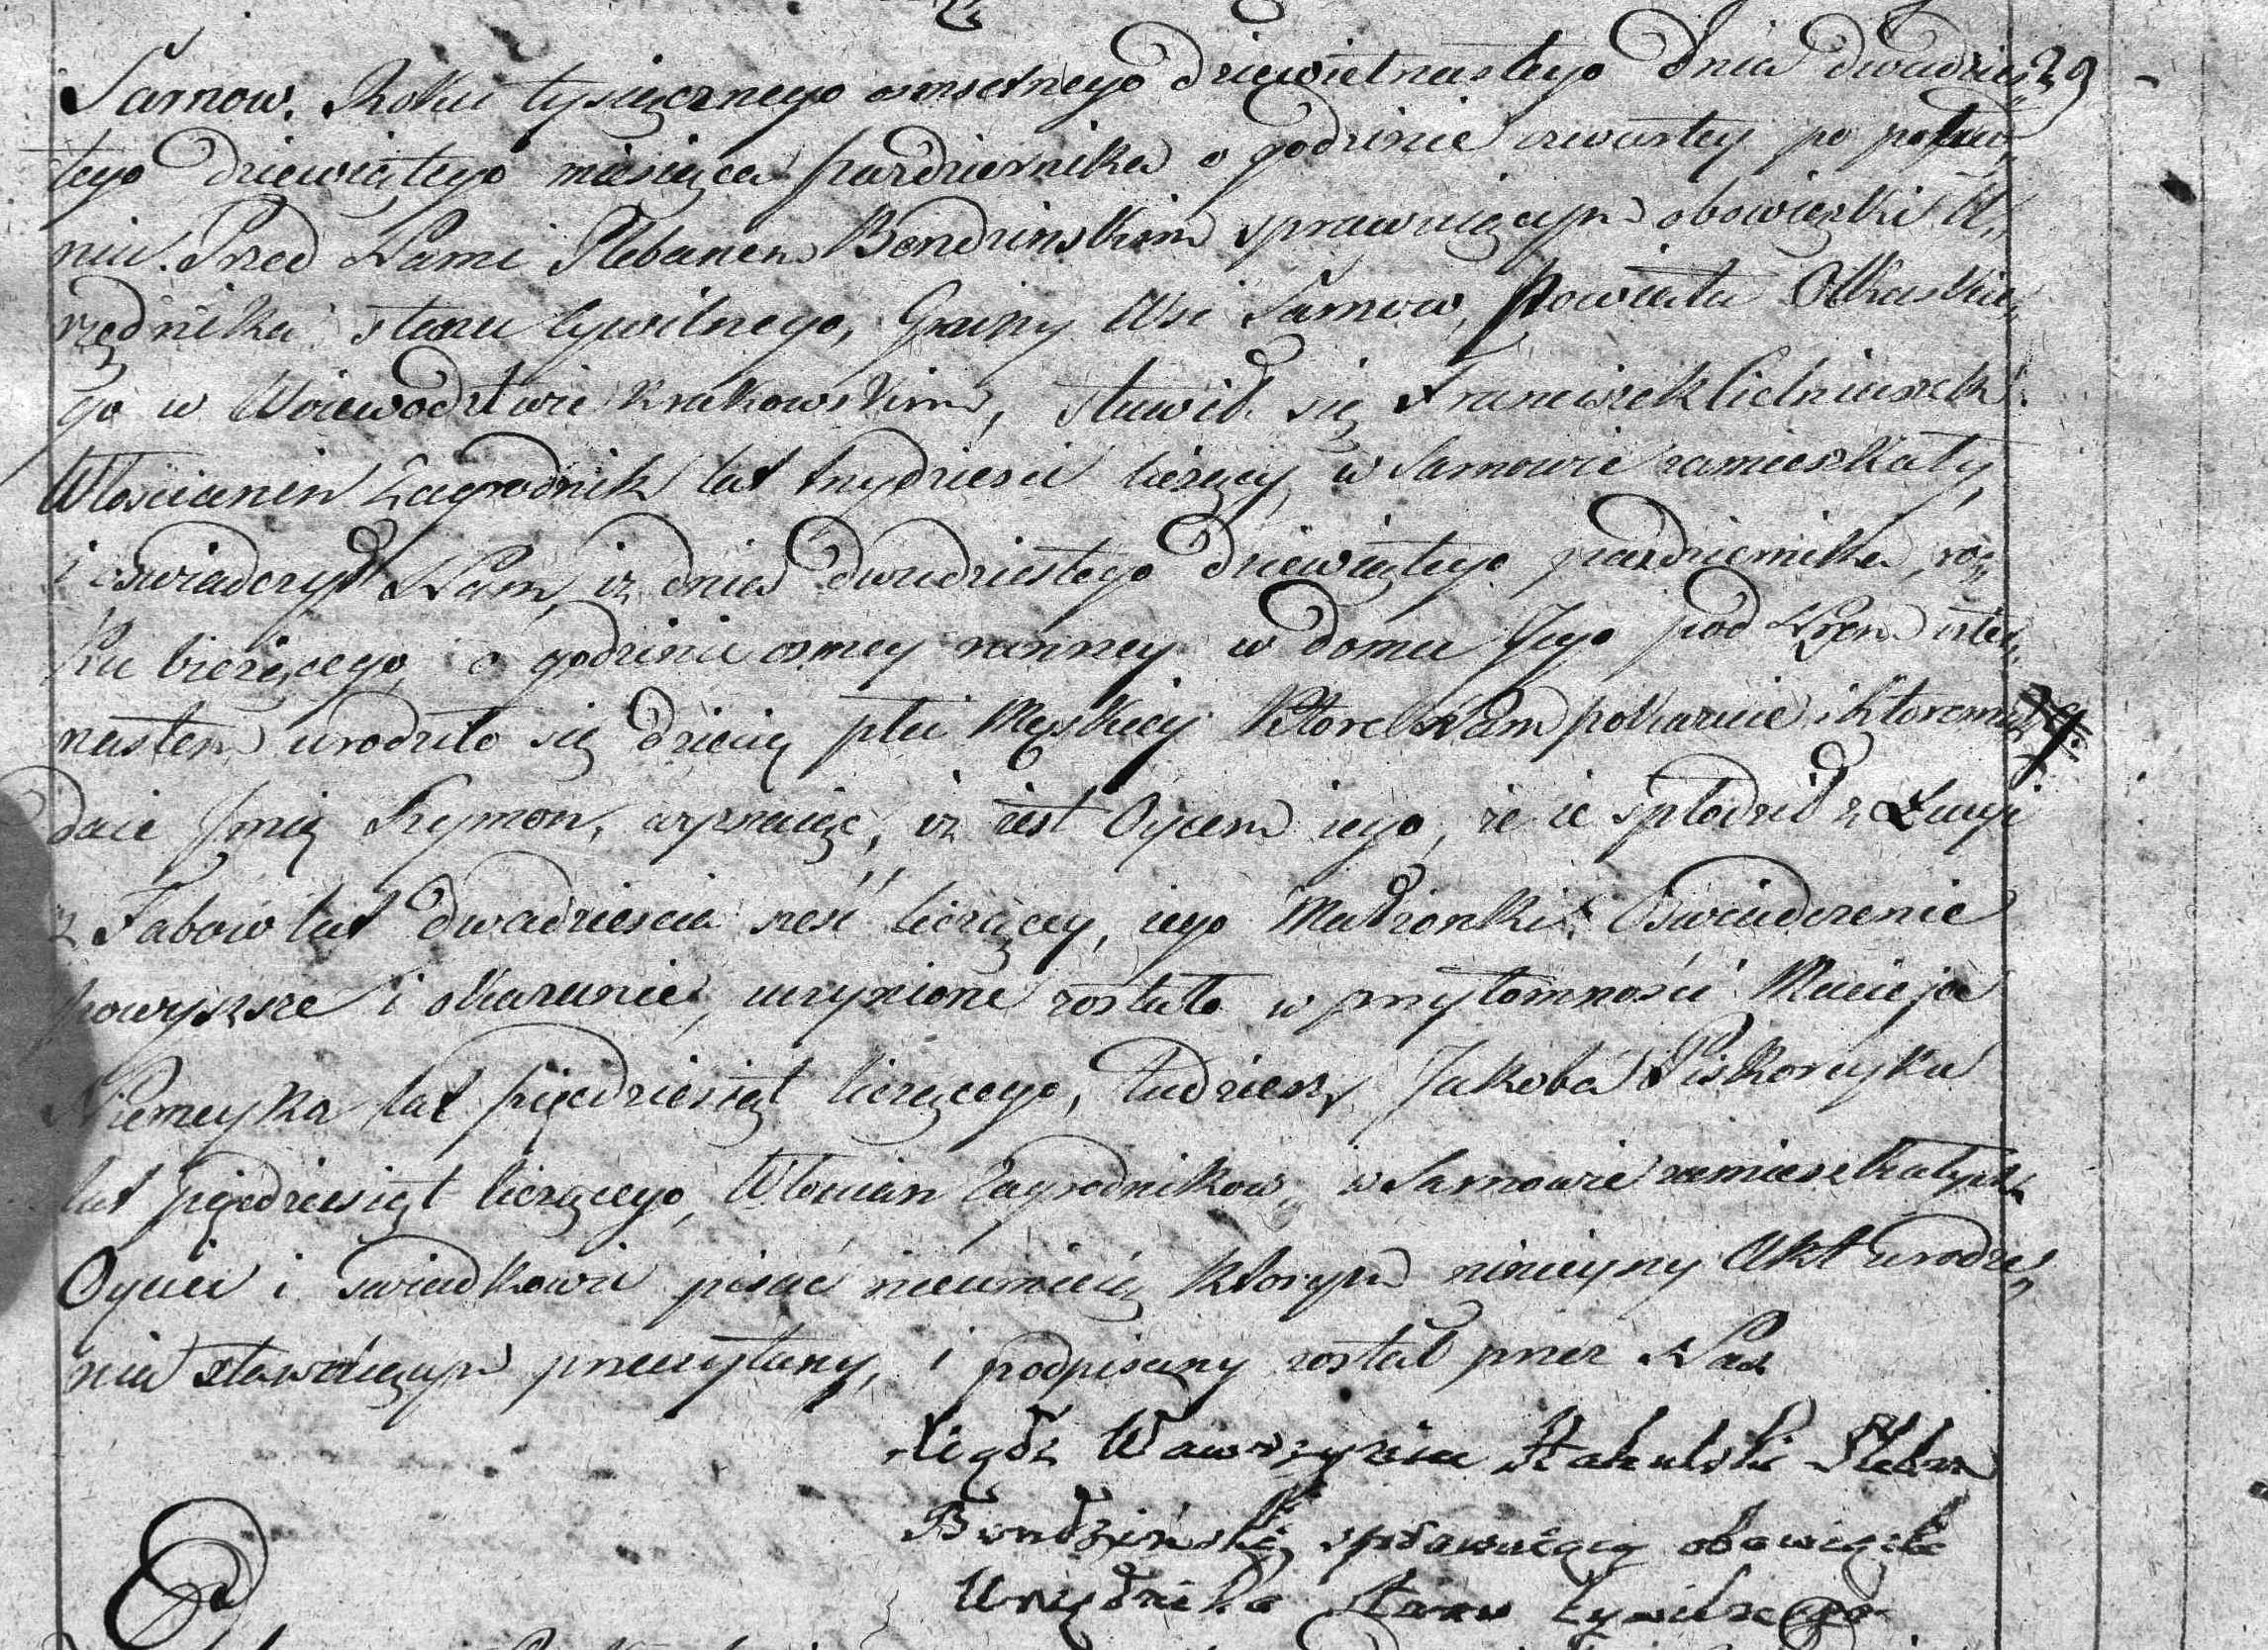 Sarnow. Roku tysięcznego osmsetnego dziewiętnastego dnia dwudzies„ 29
tego dziewiątego miesiąca pazdziernika o godzinie czwartey po połud„
niu. Przed Nami Plebanem Bendzinskim sprawuiącym obowiązki U„
rzędnika stanu Cywilnego, Gminy Wsi Sarnow, Powiatu Olkuskie„
go w Woiewodztwie Krakowskim, stawił się Franciszek Cieluiuszek
Włoscianin Zagrodnik lat trzydziesci liczący, w Sarnowie zamieszkały,
i oswiadczył Nam, iz dnia dwudziestego dziewiątego pazdziernika, ro„
ku bieżącego, o godzinie osmey ranney w domu Jego pod Nrem
nastem urodziło się dziecię płci Męskiey które Nam pokazuie i któremu
daie Jmię Szymon, wyznaiąc, iz iest Oycem iego, że ie spłodził z Łucyi
z Fabow lat dwadziescia szesć liczącey, iego Małżonki. Oswiadczenie
powyższe i okazanie, uczynione zostało w przytomności Macieja
Niemczyka lat pięcdziesiąt liczącego, tudziesz Jakoba Piskorczyka
lat pięcdziesiąt liczącego, Włoscian Zagrodnikow, w Sarnowie zamieszkałych
Oyciec i swiadkowie pisać nieumieią ktorym ninieyszy Akt urodze„
nia stawaiącym przeczytany, i podpisany został przez Nas
Xiądz Wawrzyniec Pleban
Bendziński sprawuiący obowiązki
Urzędnika Stanu Cywilnego